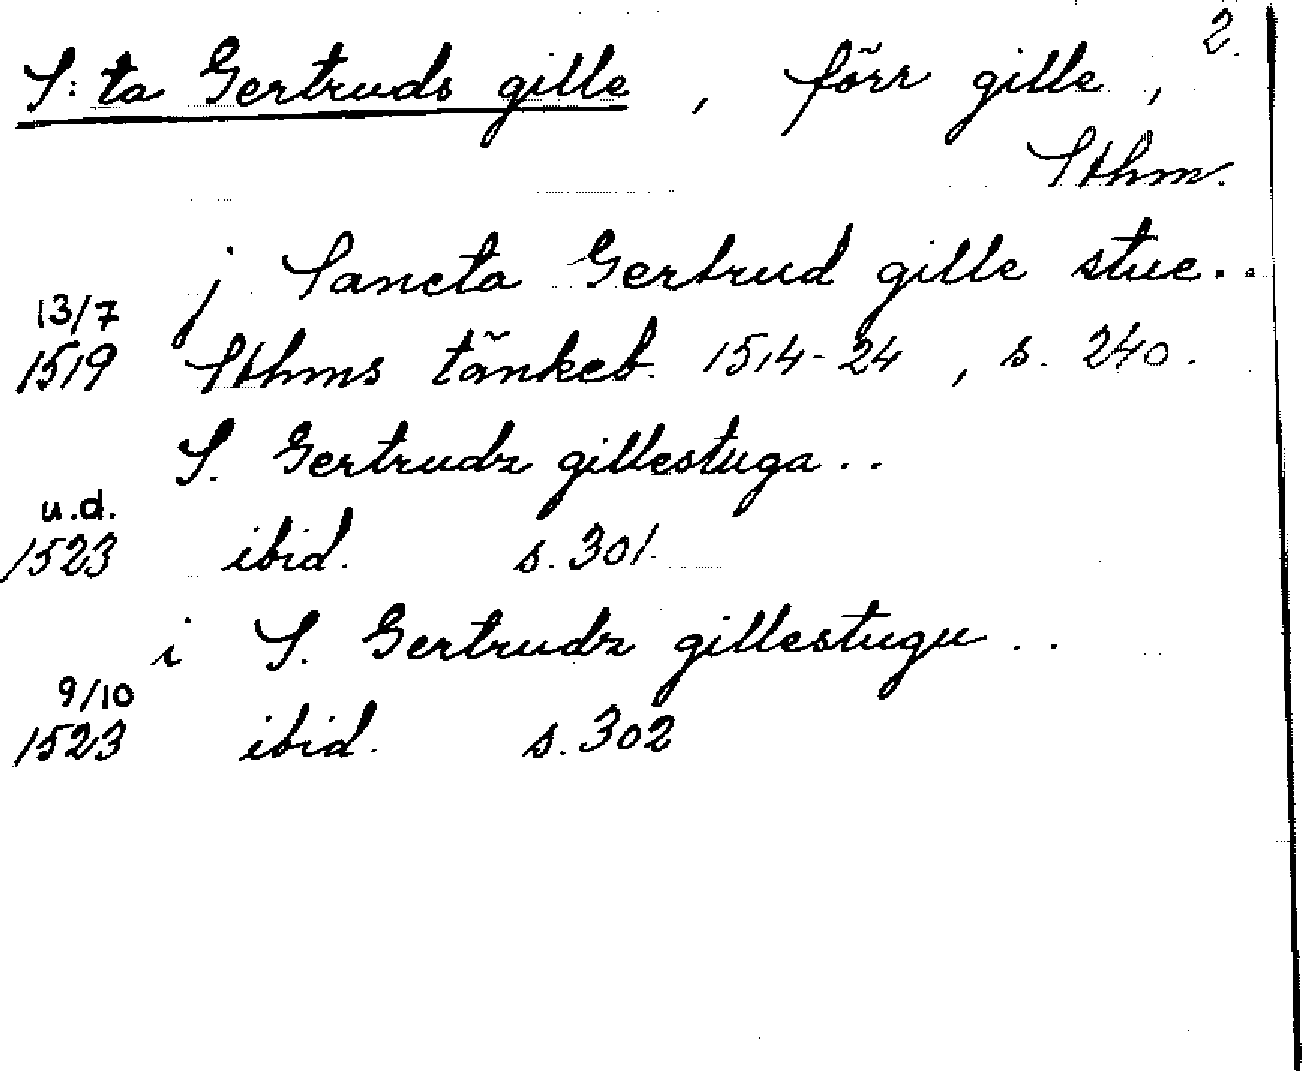 2.
S:ta Gertruds gille, förr gille,
Sthm.
j Sancta Gertrud gille stue..
13/7
1519 Sthms tänkeb. 1514-24, s. 240.
S. Gertrudz gillestuga..
u.d.
1523 ibid. s. 301.
i S. Gertrudz gillestugu..
9/10
1523 ibid. s. 302